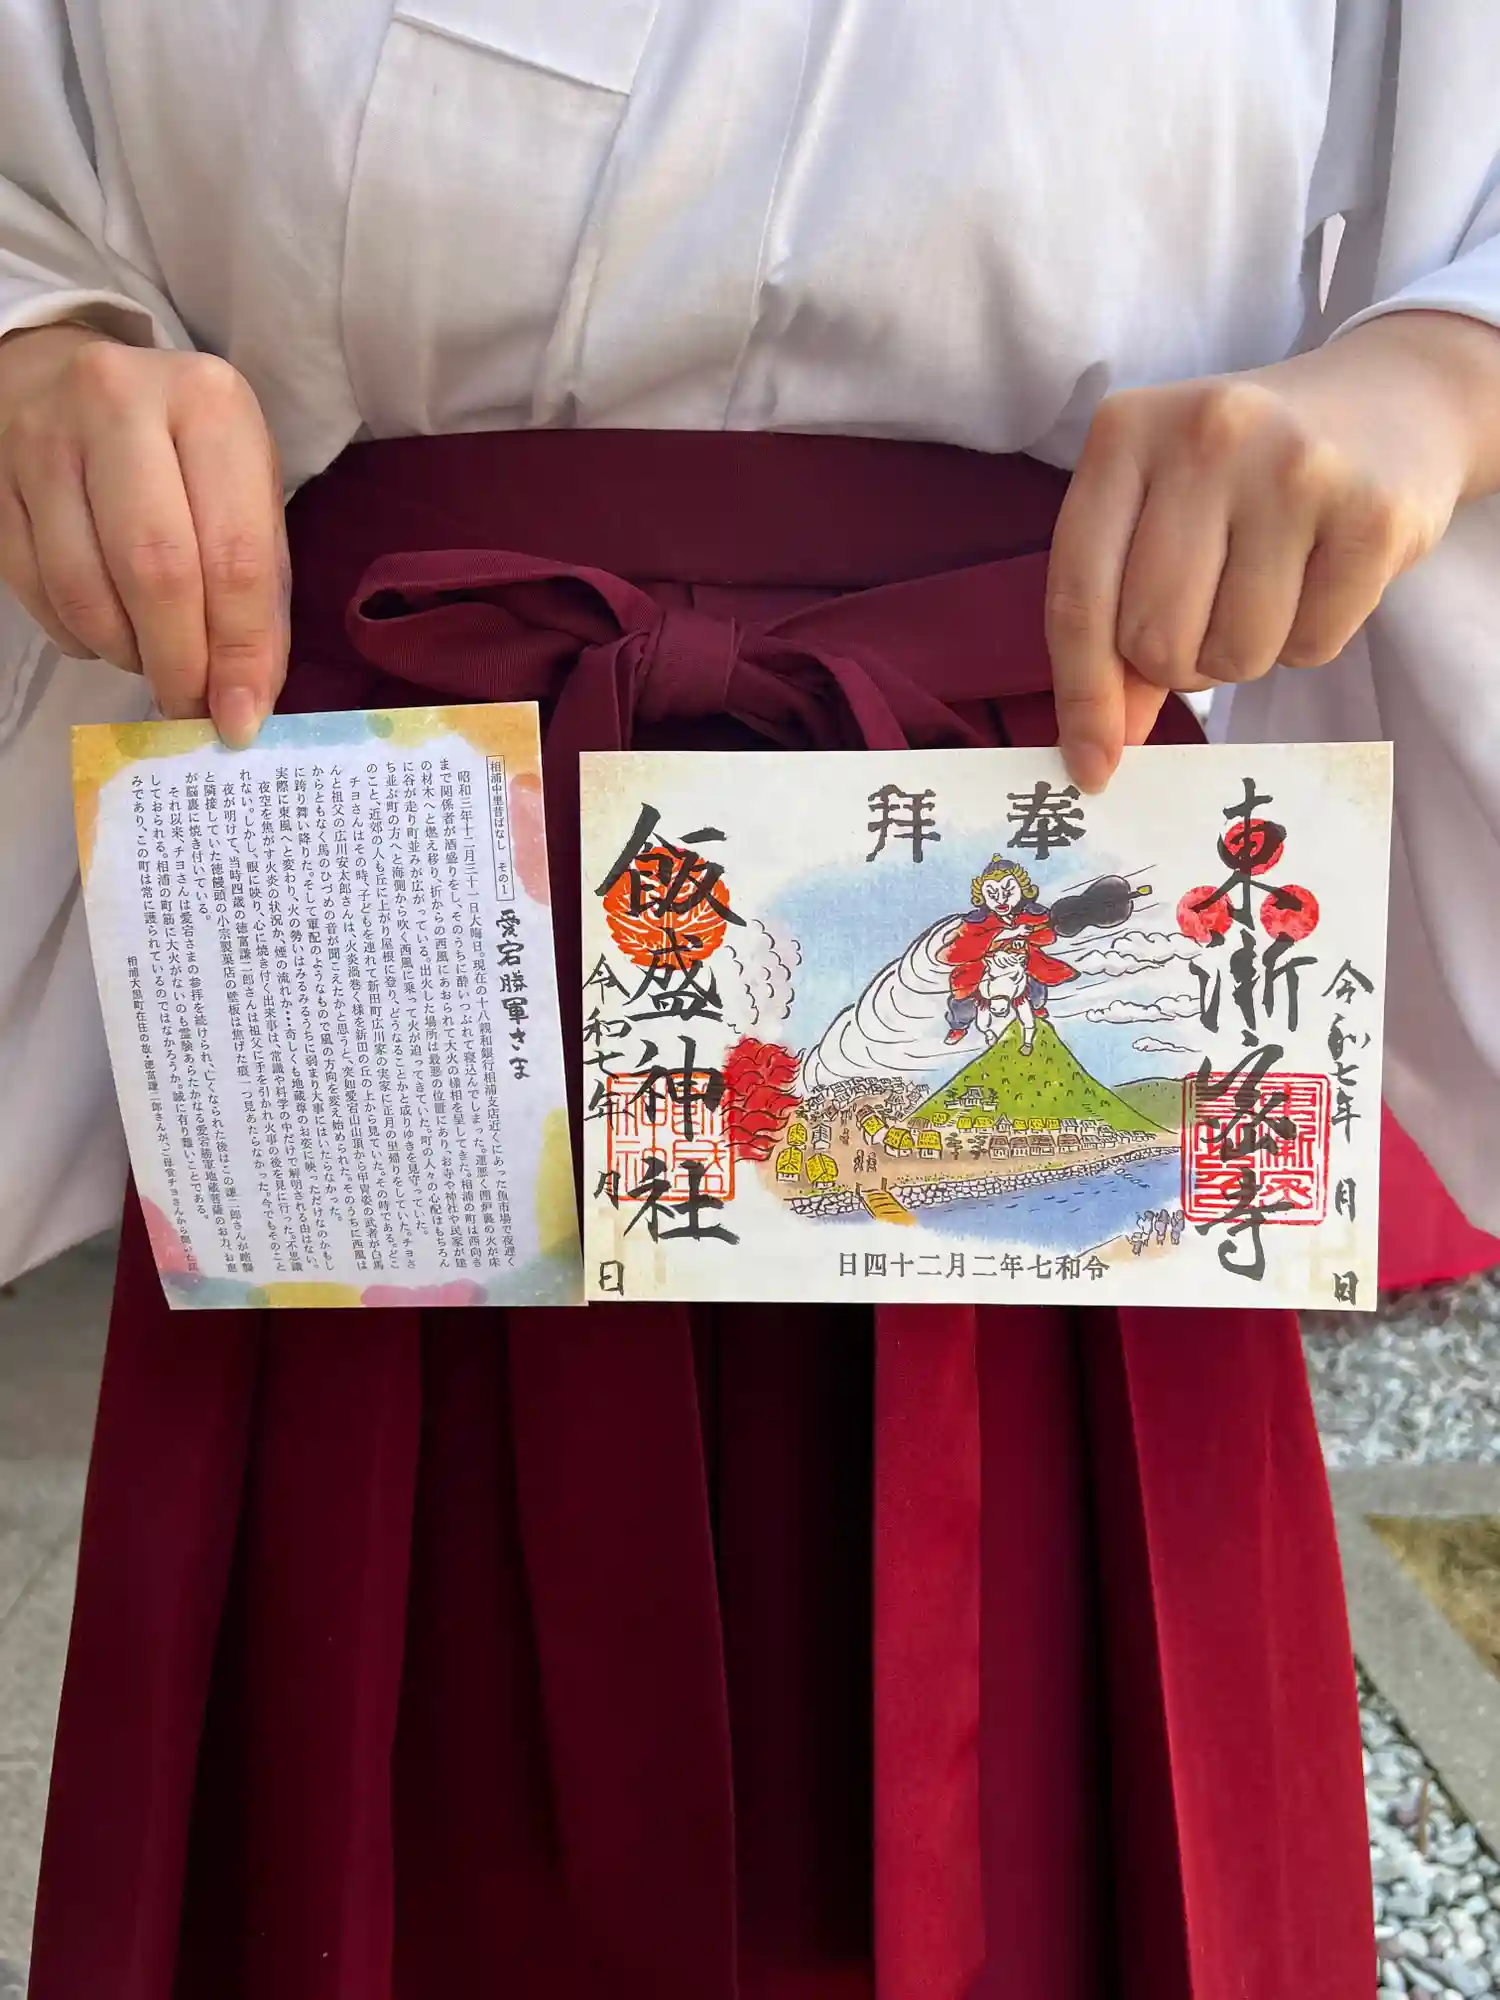 相浦中里昔ばなし その1
愛宕勝軍さま
昭和三年十二月三十一日大晦日。現在の十八親和銀行相浦支店近くにあった魚市場で夜遅く
まで関係者が酒盛りをし、そのうちに酔いつぶれて寝込んでしまった。運悪く囲炉裏の火が床
の材木へと燃え移り、折からの西風にあおられて大火の様相を呈してきた。相浦の町は西向き
に谷が走り町並みが広がっている。出火した場所は最悪の位置にあり、お寺や神社や民家が建
ち並ぶ町の方へと海側から吹く西風に乗って火が迫ってきていた。町の人々の心配はもちろん
のこと、近郊の人も丘に上がり屋根に登り、どうなることかと成りゆきを見守っていた。
チヨさんはその時、子どもを連れて新田町広川家の実家に正月の里帰りをしていた。チヨさ
んと祖父の広川安太郎さんは、火炎渦巻く様を新田の丘の上から見ていた。その時である。どこ
からともなく馬のひづめの音が聞こえたかと思うと、突如愛宕山山頂から甲冑姿の武者が白馬
に跨り舞い降りた。そして軍配のようなもので風の方向を変え始められた。そのうちに西風は
実際に東風へと変わり、火の勢いはみるみるうちに弱まり大事にはいたらなかった。
夜空を焦がす火炎の状況か、煙の流れか・・・奇しくも地蔵尊のお姿に映っただけなのかもし
れない。しかし、眼に映り、心に焼き付く出来事は、常識や科学の中だけで解明される由はない。
夜が明けて、当時四歳の徳富謙二郎さんは祖父に手を引かれ火事の後を見に行った。不思議
と隣接していた徳饅頭の小宗製菓店の壁板は焦げた痕一つ見あたらなかった。今でもそのこと
が脳裏に焼き付いている。
それ以来、チヨさんは愛宕さまの参拝を続けられ、亡くなられた後はこの謙二郎さんが踏襲
しておられる。相浦の町筋に大火がないのも霊験あらたかなる愛宕勝軍地蔵菩薩のお力、お恵
みであり、この町は常に護られているのではなかろうか。誠に有り難いことである。
相浦大黒町在住の故・徳富謙二郎さんが、ご母堂チヨさんから聞いた話
東漸寺
令和七年 月 日
奉拝
飯盛神社
令和七年 月 日
日四十二月二年七和令